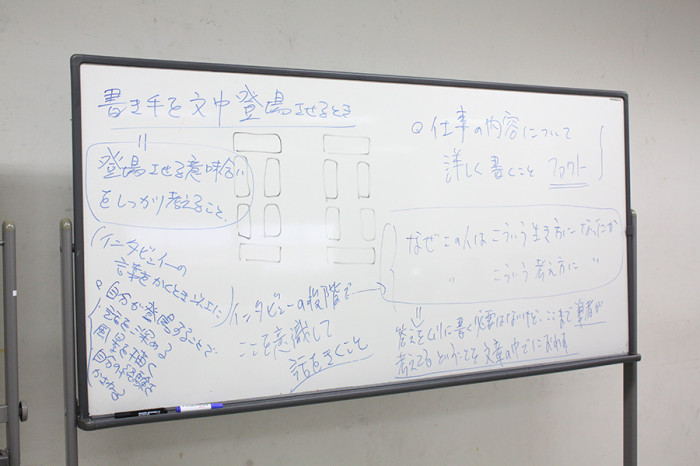 書き手を文中登場させるとき
登場させる意味合い
をしっかり考えること、
(インタビュイーの
言葉をかくとき以上に)
・自分が登場することで
話を深める
風景を描く
自分の体験を
インタビューの段階で
ここを意識して
話をきくこと
○仕事の内容について
詳しく書くこと ファクト
なぜこの人はこういう生き方になったか
〃 こういう考え方に 〃
答えをムリに書く必要はないけど、ここまで筆者が
考えてるということを文章の中で